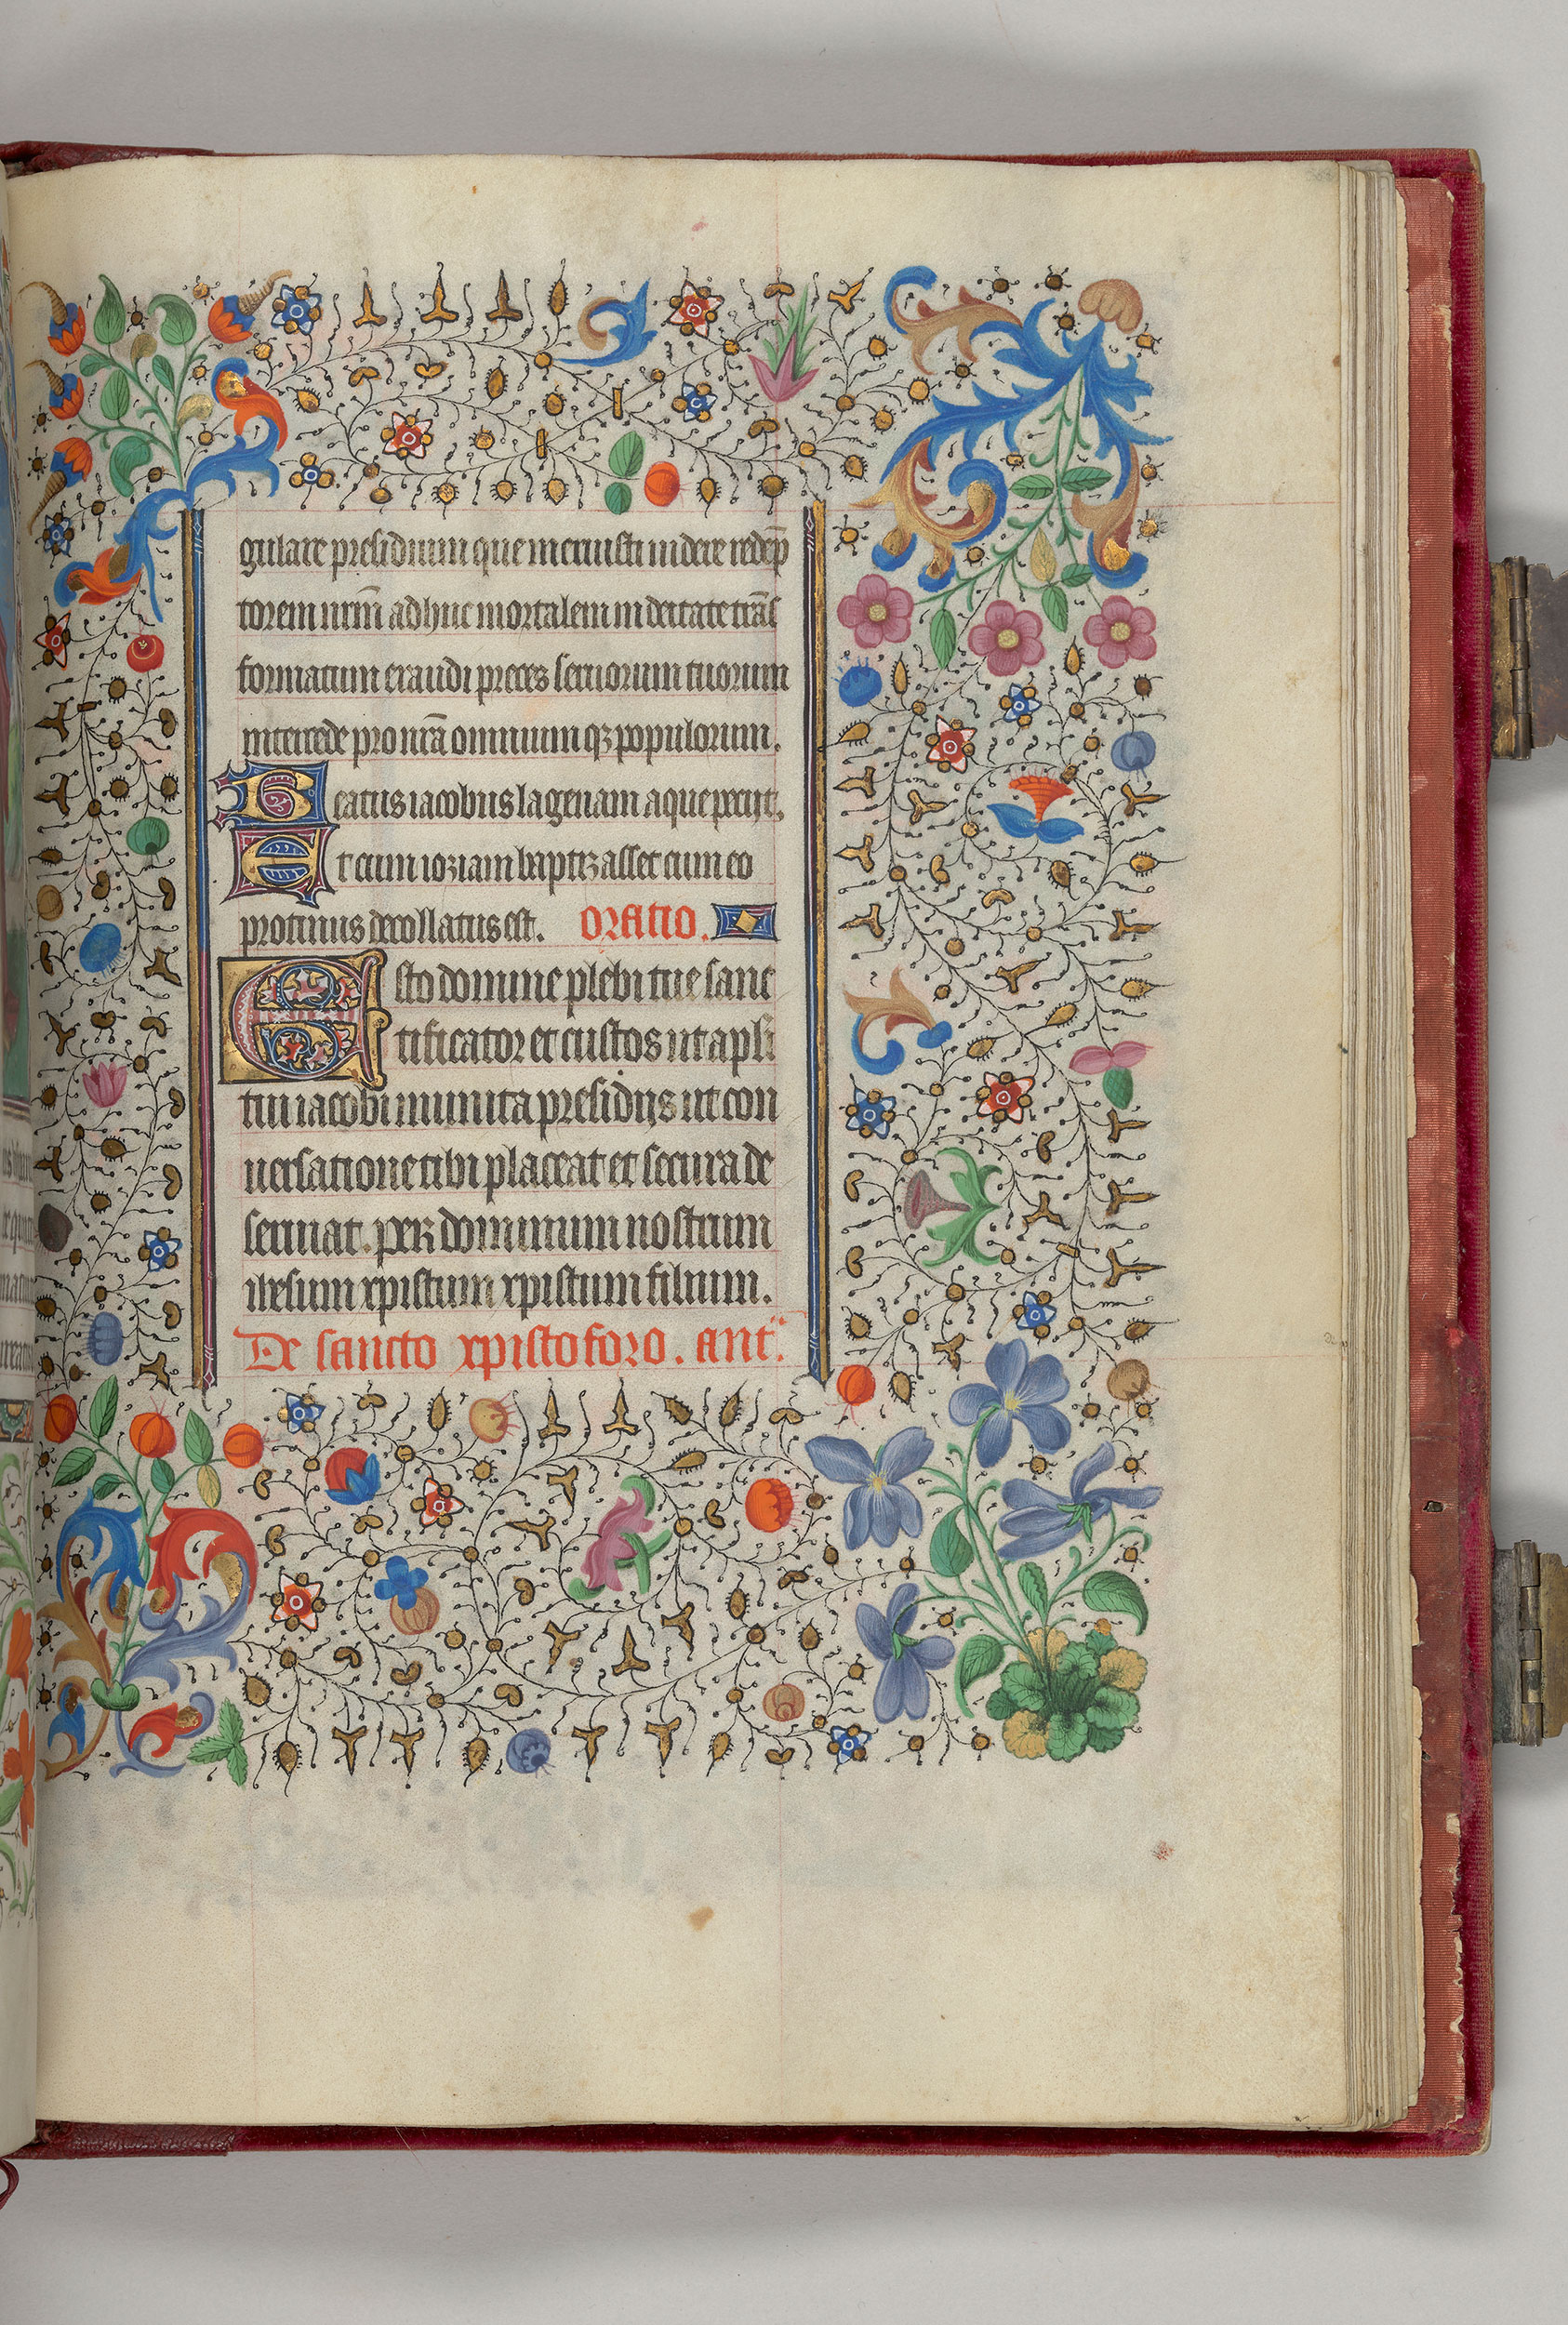 gulare presidium que meruisti videre redēp
torem nrm̄ adhuc mortalem in deitate trās
formatum exaudi preces seruorum tuorum
intercede pro nrā omnium qꝫ populorum.
Beatus iacobus lagenam aque petijt.
Et cum ioziam baptizasset cum eo
protinus decollatus est. Oratio.
Esto domine plebi tue sanc
tificator et custos ut apli
tui iacobi munita presidijs ut con
uersatione tibi placeat et secura de
seruiat. per dominum nostrum
ihesum xpistum xpistum filium.
De sancto xpistoforo. ant.